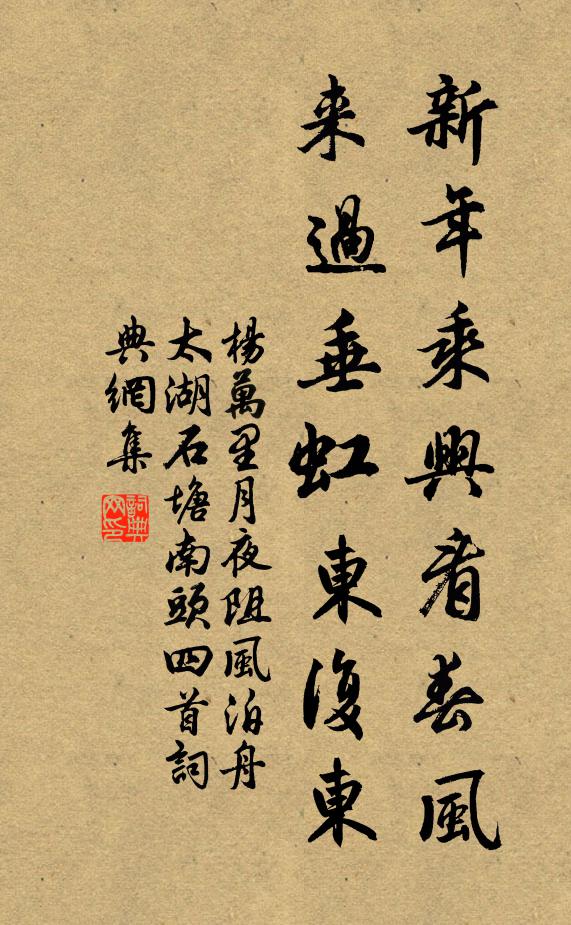 新年乘興看春風
来過垂虹東復東
楊萬里月夜阻風泊舟
太湖石塘南頭四首詞
典網集
詞典
网印